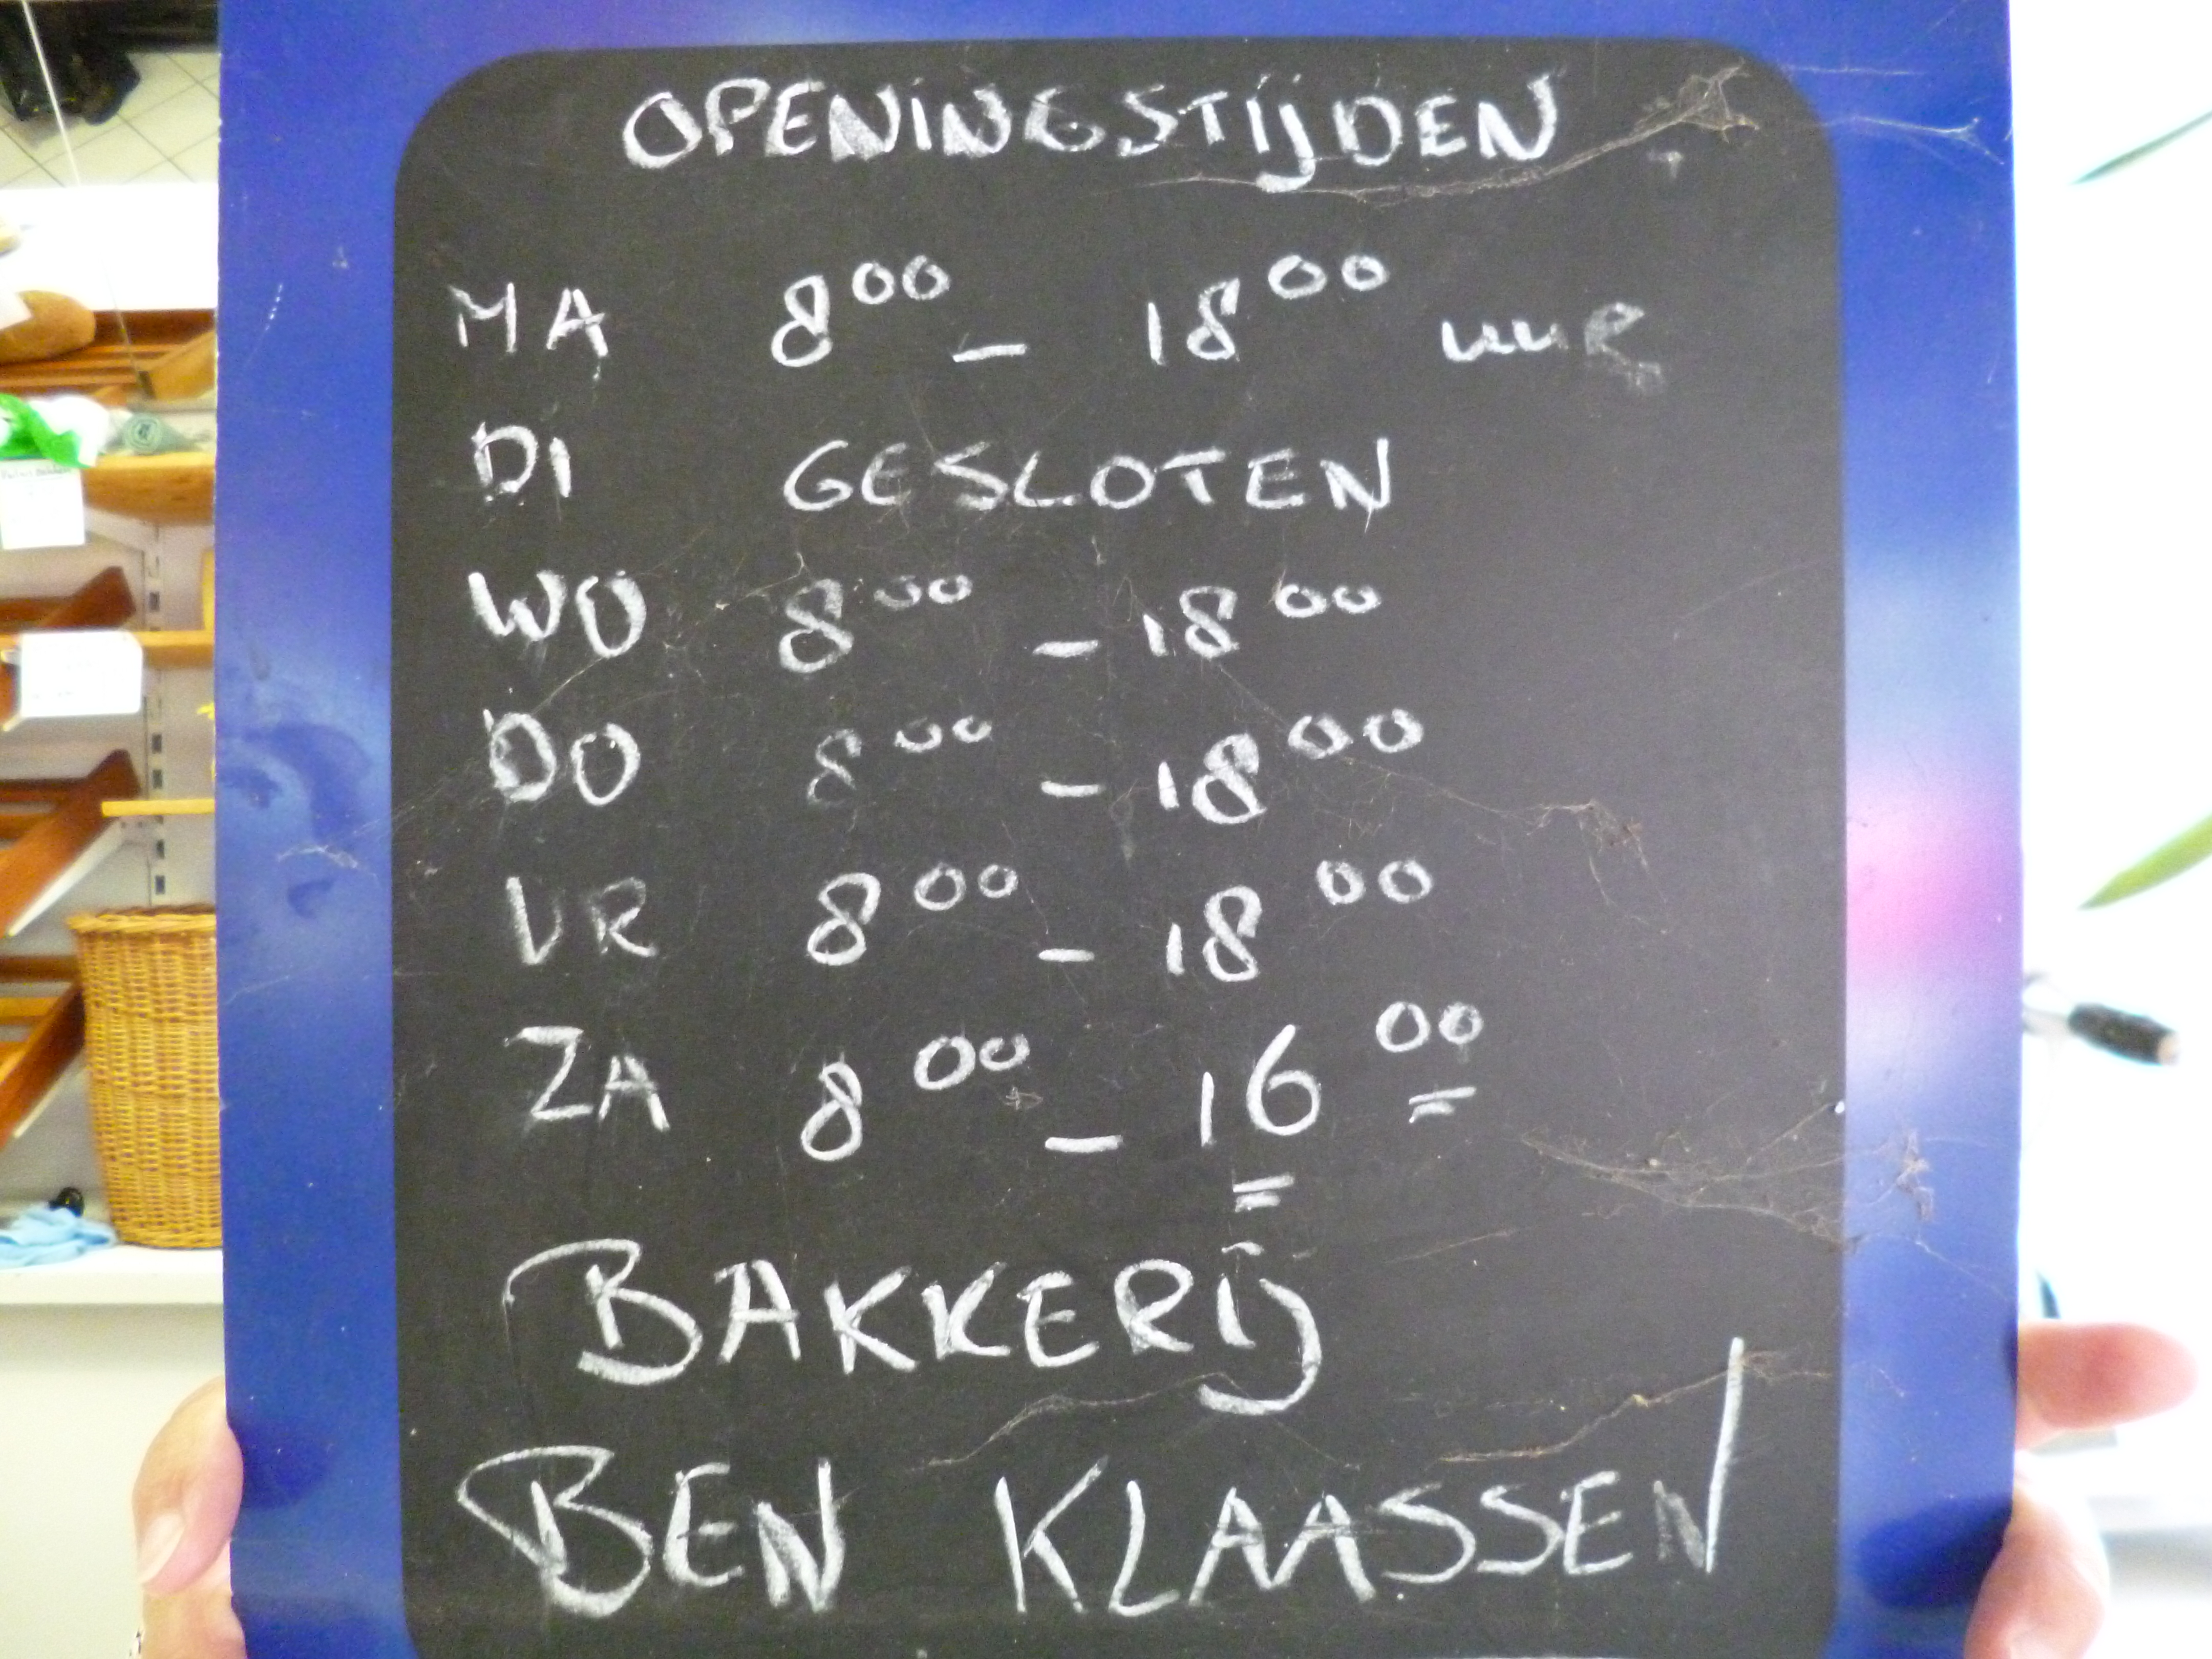 OPENINGSTIJDEN
MA 8⁰⁰ – 18⁰⁰ uur
DI GESLOTEN
WO 8⁰⁰ – 18⁰⁰
DO 8⁰⁰ – 18⁰⁰
VR 8⁰⁰ – 18⁰⁰
ZA 8⁰⁰ – 16⁰⁰
BAKKERIJ
BEN KLAASSEN